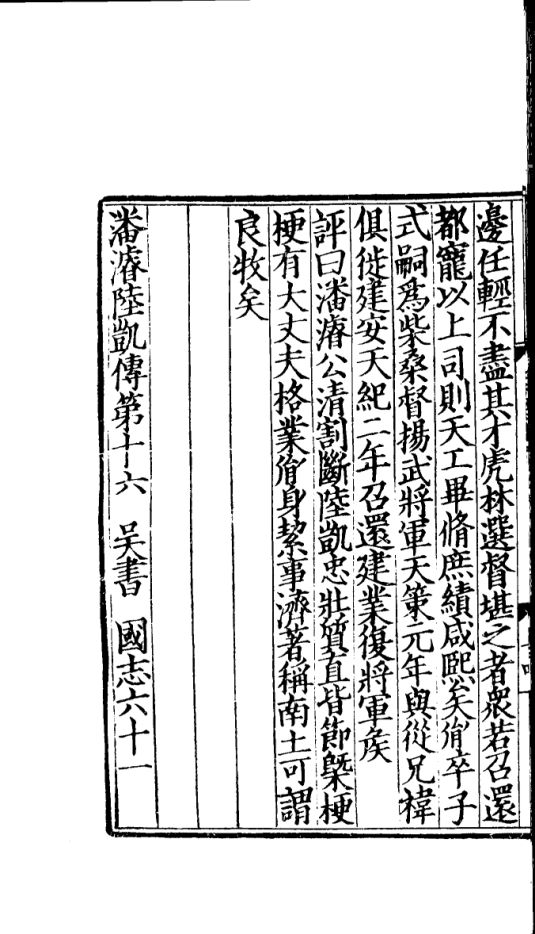 邊任輕不盡其才虎林選督堪之者衆若召還
都寵以上司則天工畢脩庶績咸熙矣胤卒子
式嗣爲柴桑督揚武將軍天策元年與從兄禕
俱徙建安天紀二年召還建業復將軍矦
評曰潘濬公清割斷陸凱忠壯質直皆節槩梗
梗有大丈夫格業胤身絜事濟著稱南土可謂
良牧矣
潘濬陸凱傳第十六 吴書 國志六十一